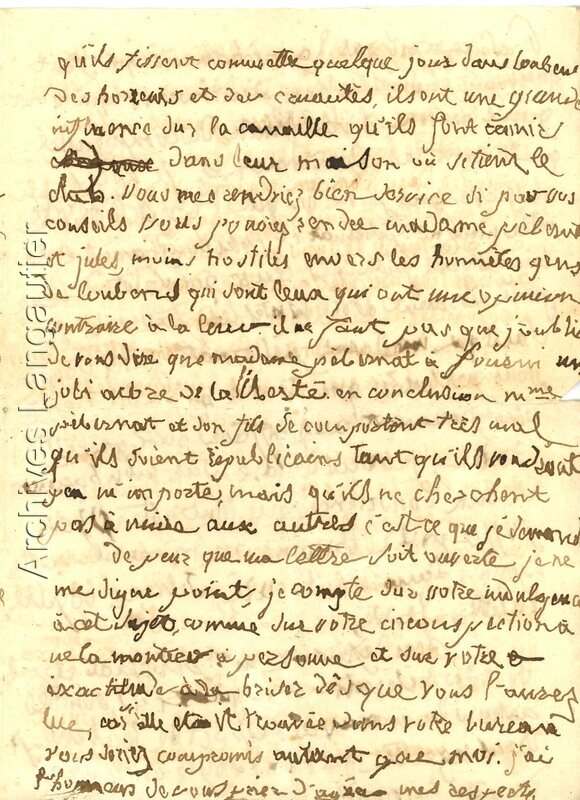 qu'ils fissent commettre quelque jour dans loubens
des horreurs et des cruautés, ils ont une grande
influence sur la canaille qu'ils font réunir
dans leur maison ou se tient le
club. vous me rendriez bien service si par vos
conseils vous pouviez rendre madame pélernat
et jules, moins hostiles envers les honnêtes gens
de loubens qui sont ceux qui ont une opinion
contraire à la leur il ne faut pas que j'oublie
de vous dire que madame pélernat a fourni un
joli arbre de la liberté. en conclusion mme
pélernat et son fils se comportent très mal
qu'ils soient républicains tant qu'ils voudront
peu m'importe, mais qu'ils ne cherchent
pas à nuire aux autres c'est ce que je demande
de peur que ma lettre soit ouverte je ne
me signe point, je compte sur votre indulgence
à cet sujet, comme sur votre circonspection a
ne la montrer a personne et sur votre
exactitude a la briser dès que vous l'aurez
lue, car elle était trouvée dans votre bureau
vous seriez compromis autant que moi. j'ai
l'honneur de vous prier d'agréer mes respects
Archives Langautier